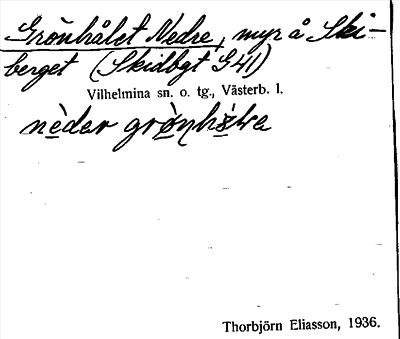 Grönhålet Nedre, myr å Ski-
berget (Skidbgt G41)
Vilhelmina sn. o. tg., Västerb. l.
nèdar
Thorbjörn Eliasson, 1936.